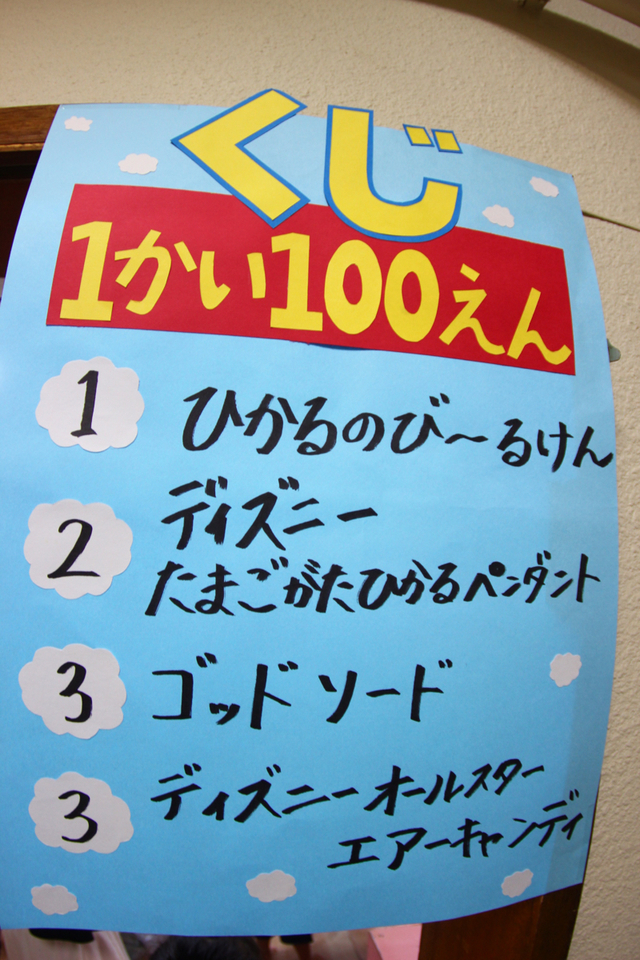 くじ
1かい100えん
1 ひかるのび～るけん
2 ディズニー
たまごがたひかるペンダント
3 ゴッド ソード
3 ディズニーオールスター
エアーキャンディ